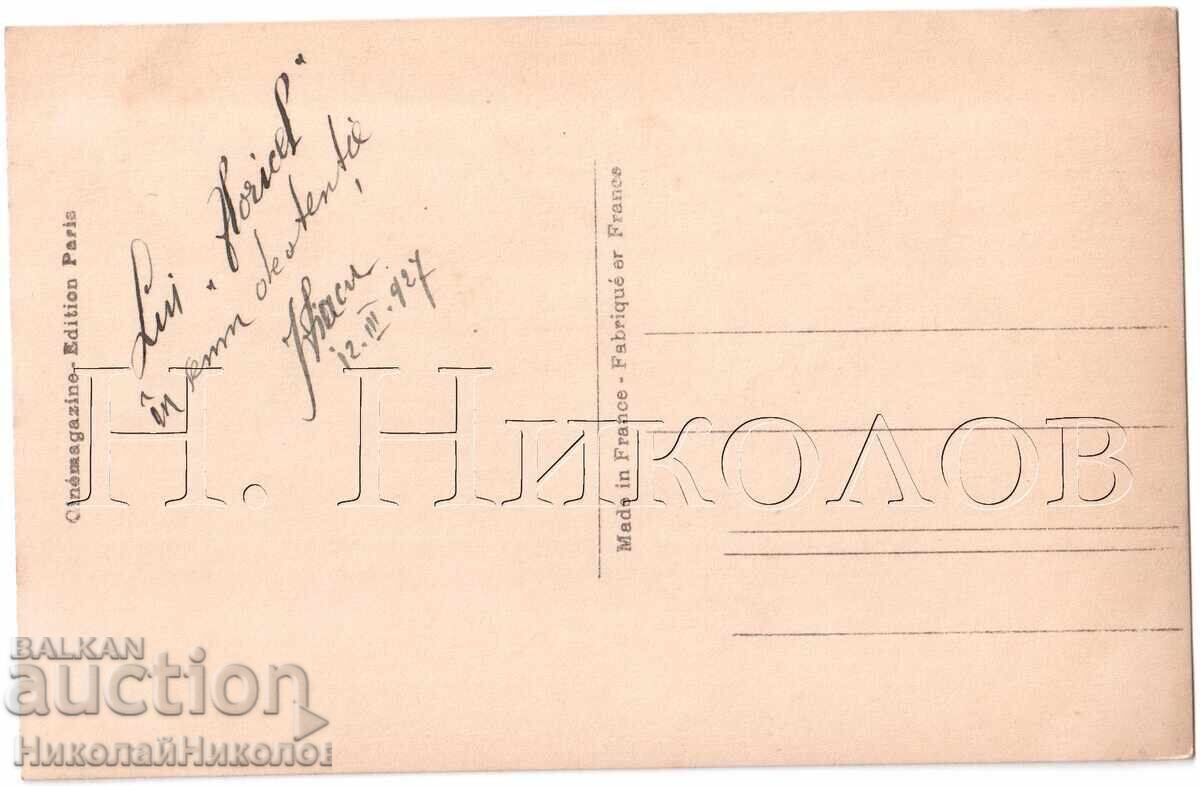 Lui "Floricel"
în semn de atenție
12.III.927
Cinémagazine - Edition Paris
Made in France - Fabriqué en France
Н. Николов
BALKAN
auction
НиколайНиколов